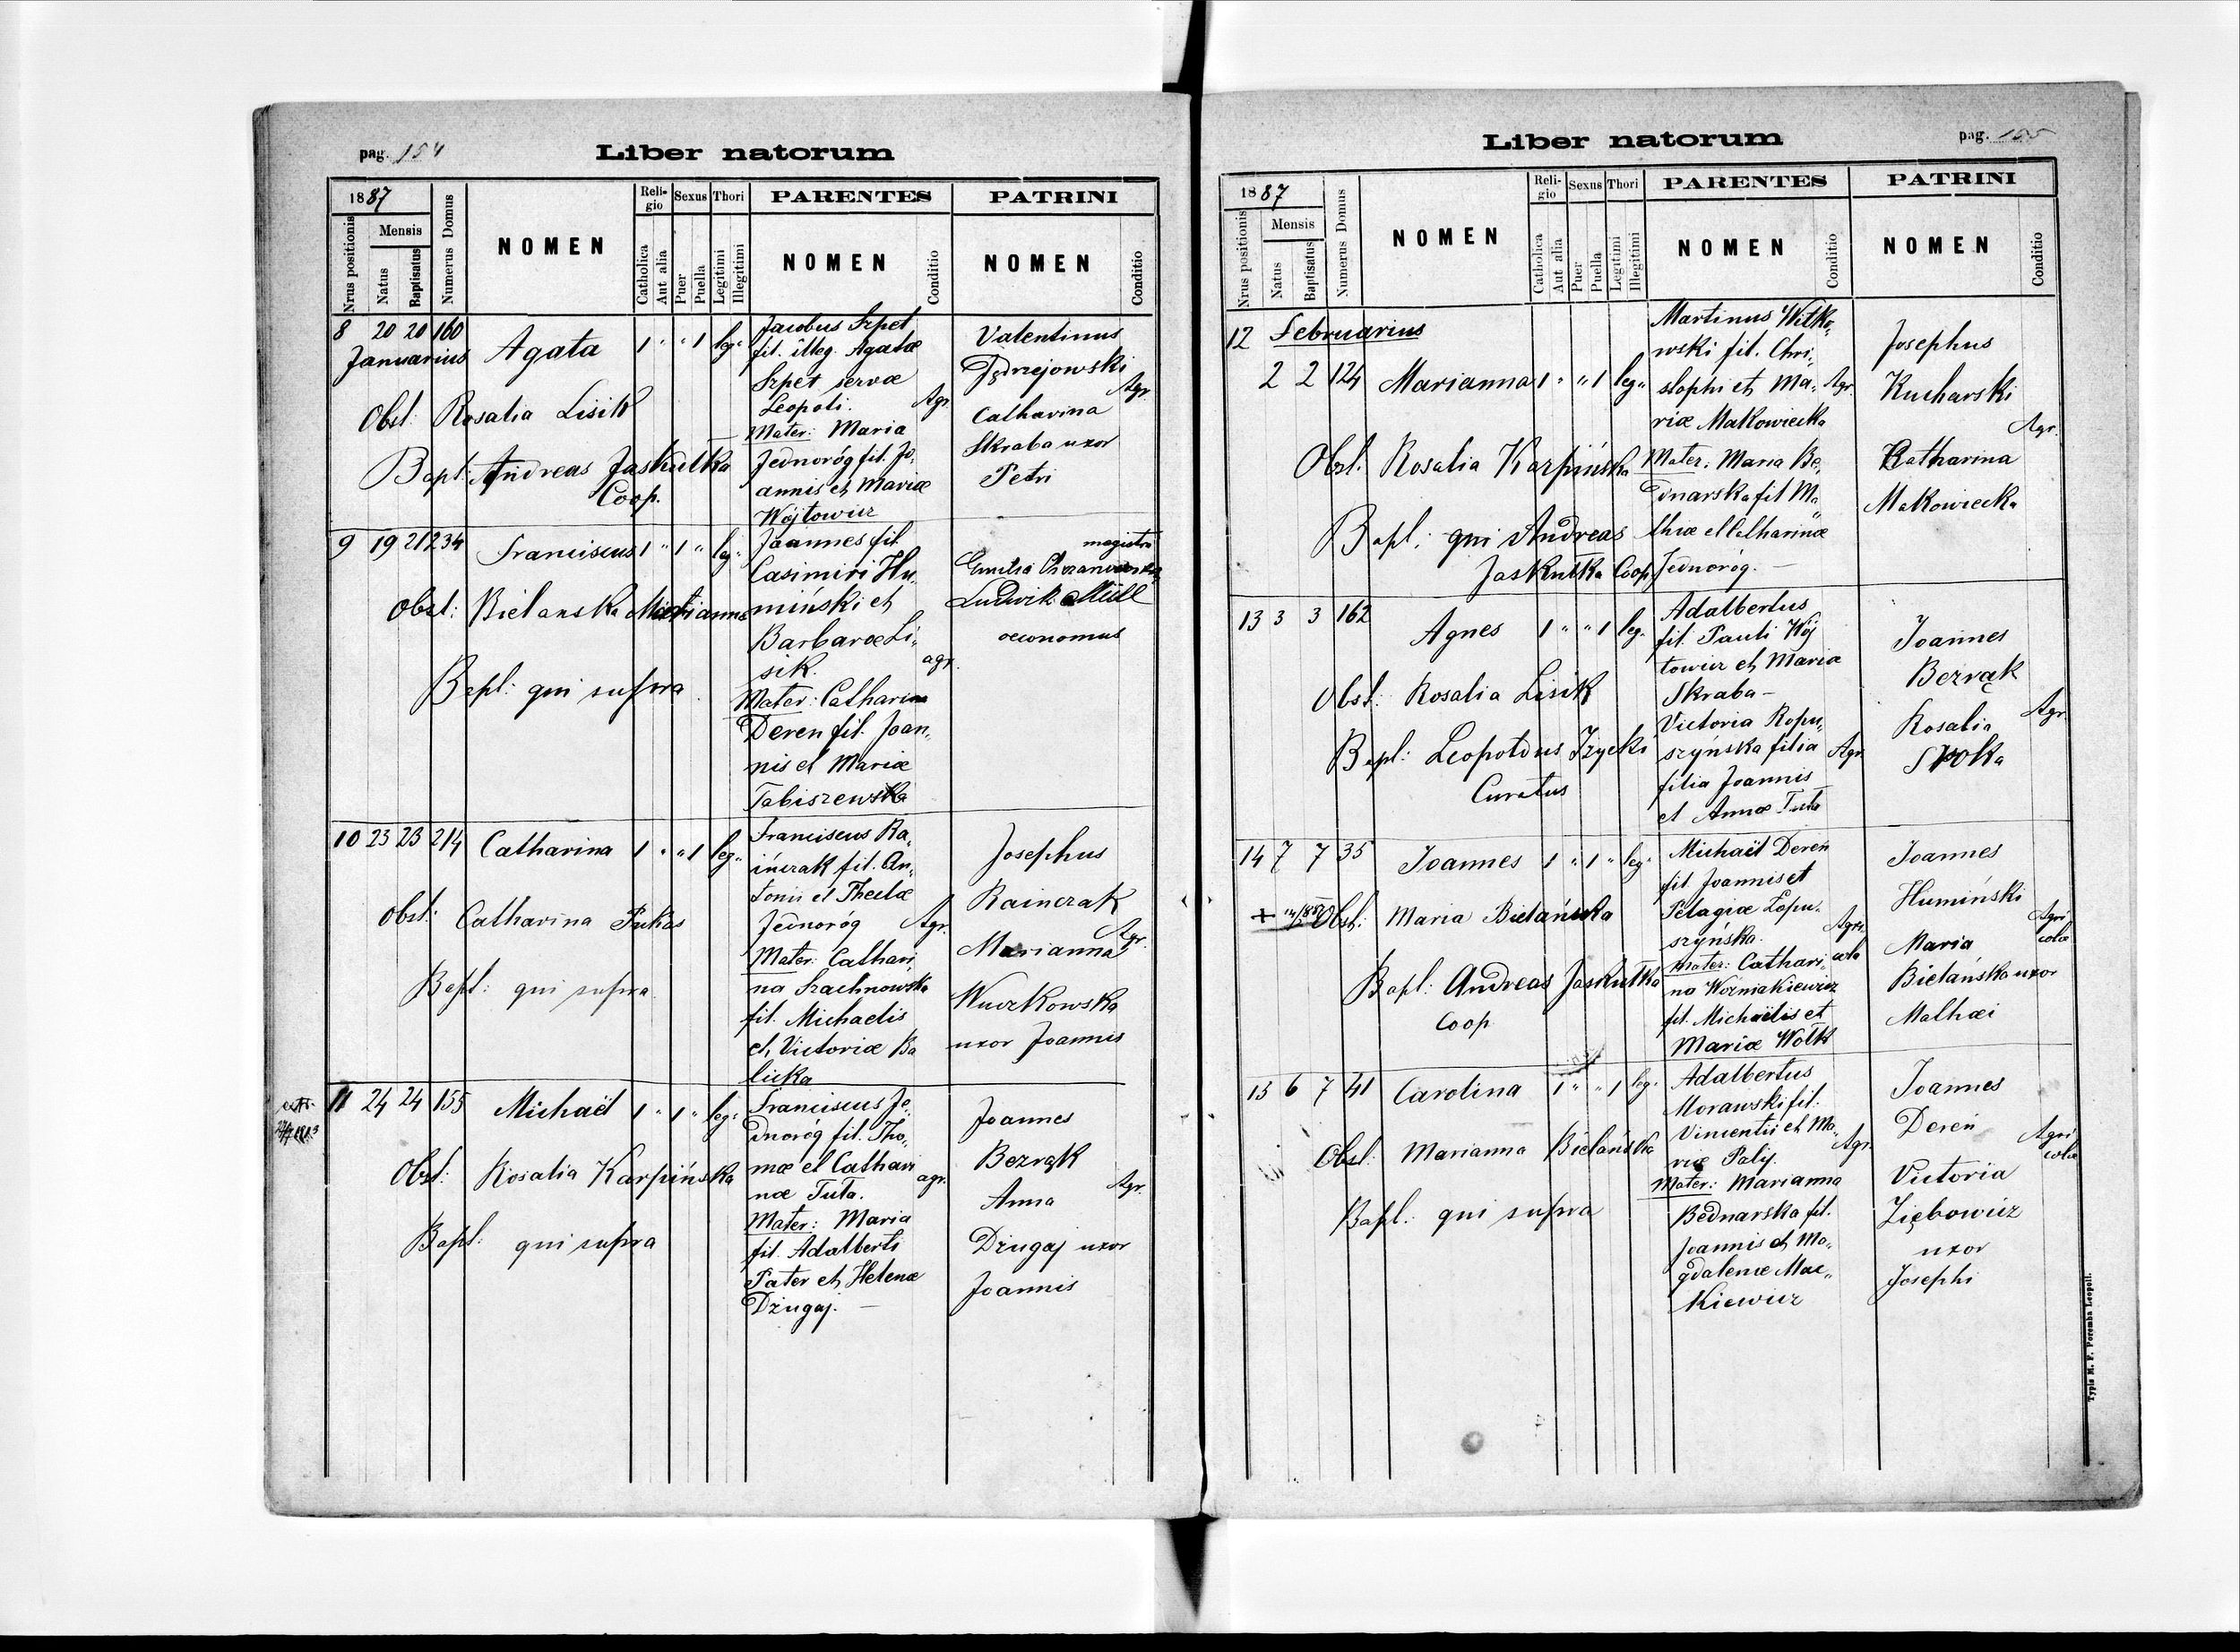 pag. 154
Liber natorum
1887
Nrus positionis
Mensis
Natus
Baptisatus
Numerus Domus
NOMEN
Reli-
gio
Catholica
Aut alia
Sexus
Puer
Puella
Thori
Legitimi
Illegitimi
PARENTES
NOMEN
Conditio
PATRINI
NOMEN
Conditio
8 20 20 160
Januarius
Agata 1 " " 1 leg.
Obst: Rosalia Lisik
Bapt: Andreas Jaskulka
Coop.
Jacobus Szpet
fil. illeg. Agatæ
Szpet servæ
Leopoli.
Agr.
Mater: Maria
Jednoróg fil. Jo„
annis et Mariæ
Wójtowicz
Valentinus
Jędrzejowski
Agr.
Catharina
Skraba uxor
Petri
9 19 21 234 Franciscus 1 " 1 " leg.
Obst: Bielanska Marianna
Bapt: qui supra
Joannes fil.
Casimiri Hu„
miński et
Barbaræ Li„
sik.
agr.
Mater: Catharina
Deren fil. Joan„
nis et Mariæ
Tabiszewska
magistra
Emilia
Ludwik Müll
oeconomus
10 23 23 214 Catharina 1 " " 1 leg.
Obst: Catharina Pukas
Bapt: qui supra
Franciscus Ra„
inczak fil. An„
tonii et Theclæ
Jednoróg
Agr.
Mater: Cathari„
na Szachnowska
fil. Michaelis
et Victoriæ Ba
licka
Josephus
Rainczak
Agr.
Marianna
Wuczkowska
uxor Joannis
11 24 24 155 Michaël 1 " 1 " leg.
Obst: Rosalia Karpińska
Bapt: qui supra
Franciscus Je„
dnoróg fil. Tho„
mæ et Cathari
næ Tuta.
agr.
Mater: Maria
fil. Adalberti
Pater et Helenæ
Dzugaj. —
Joannes
Bezrąk
Agr.
Anna
Dzugaj uxor
Joannis
pag. 155
Liber natorum
1887
Nrus positionis
Mensis
Natus
Baptisatus
Numerus Domus
NOMEN
Reli-
gio
Catholica
Aut alia
Sexus
Puer
Puella
Thori
Legitimi
Illegitimi
PARENTES
NOMEN
Conditio
PATRINI
NOMEN
Conditio
12 Februarius
2 2 124 Marianna 1 " " 1 leg.
Obst: Rosalia Karpińska
Bapt: qui Andreas
Jaskulka Coop
Martinus Witko„
wski fil. Chri„
stophi et Ma„
Agr.
riæ Makowiecka
Mater: Maria Be„
dnarska fil Ma„
thiæ et Catharinæ
Jednoróg. —
Josephus
Kucharski
Agr.
Catharina
Makowiecka
13 3 3 162 Agnes 1 " " 1 leg.
Obst: Rosalia Lisik
Bapt: Leopoldus Izycki
Curatus
Adalbertus
fil. Pauli Wój
towicz et Maria
Skraba —
Victoria Ropu„
szyńska filia
Agr.
filia Joannis
et Annæ Tuta
Joannes
Bezrąk
Agr.
Rosalia
Sroka
14 7 7 35 Joannes 1 " 1 " leg.
Obst: Maria Bielańska
Bapt: Andreas Jaskulka
Coop
Michaël Deren
fil. Joannis et
Pelagiæ Łopu„
szyńska.
Agri„
cola
Mater: Cathari„
na Wozniakiewicz
fil. Michaëlis et
Mariæ Wołk
Joannes
Humiński
Agri„
colæ
Maria
Bielańska uxor
Mathæi
15 6 7 41 Carolina 1 " " 1 leg.
Obst: Marianna Bielańska
Bapt: qui supra
Adalbertus
Morawski fil.
Vincentii et Ma„
riæ Palij.
Agr.
Mater: Marianna
Bednarska fil.
Joannis et Ma„
gdalenæ Mac„
kiewicz
Joannes
Deren
Agri
colæ
Victoria
Ziębowicz
uxor
Josephi
Typis M. F. Poremba Leopoli.